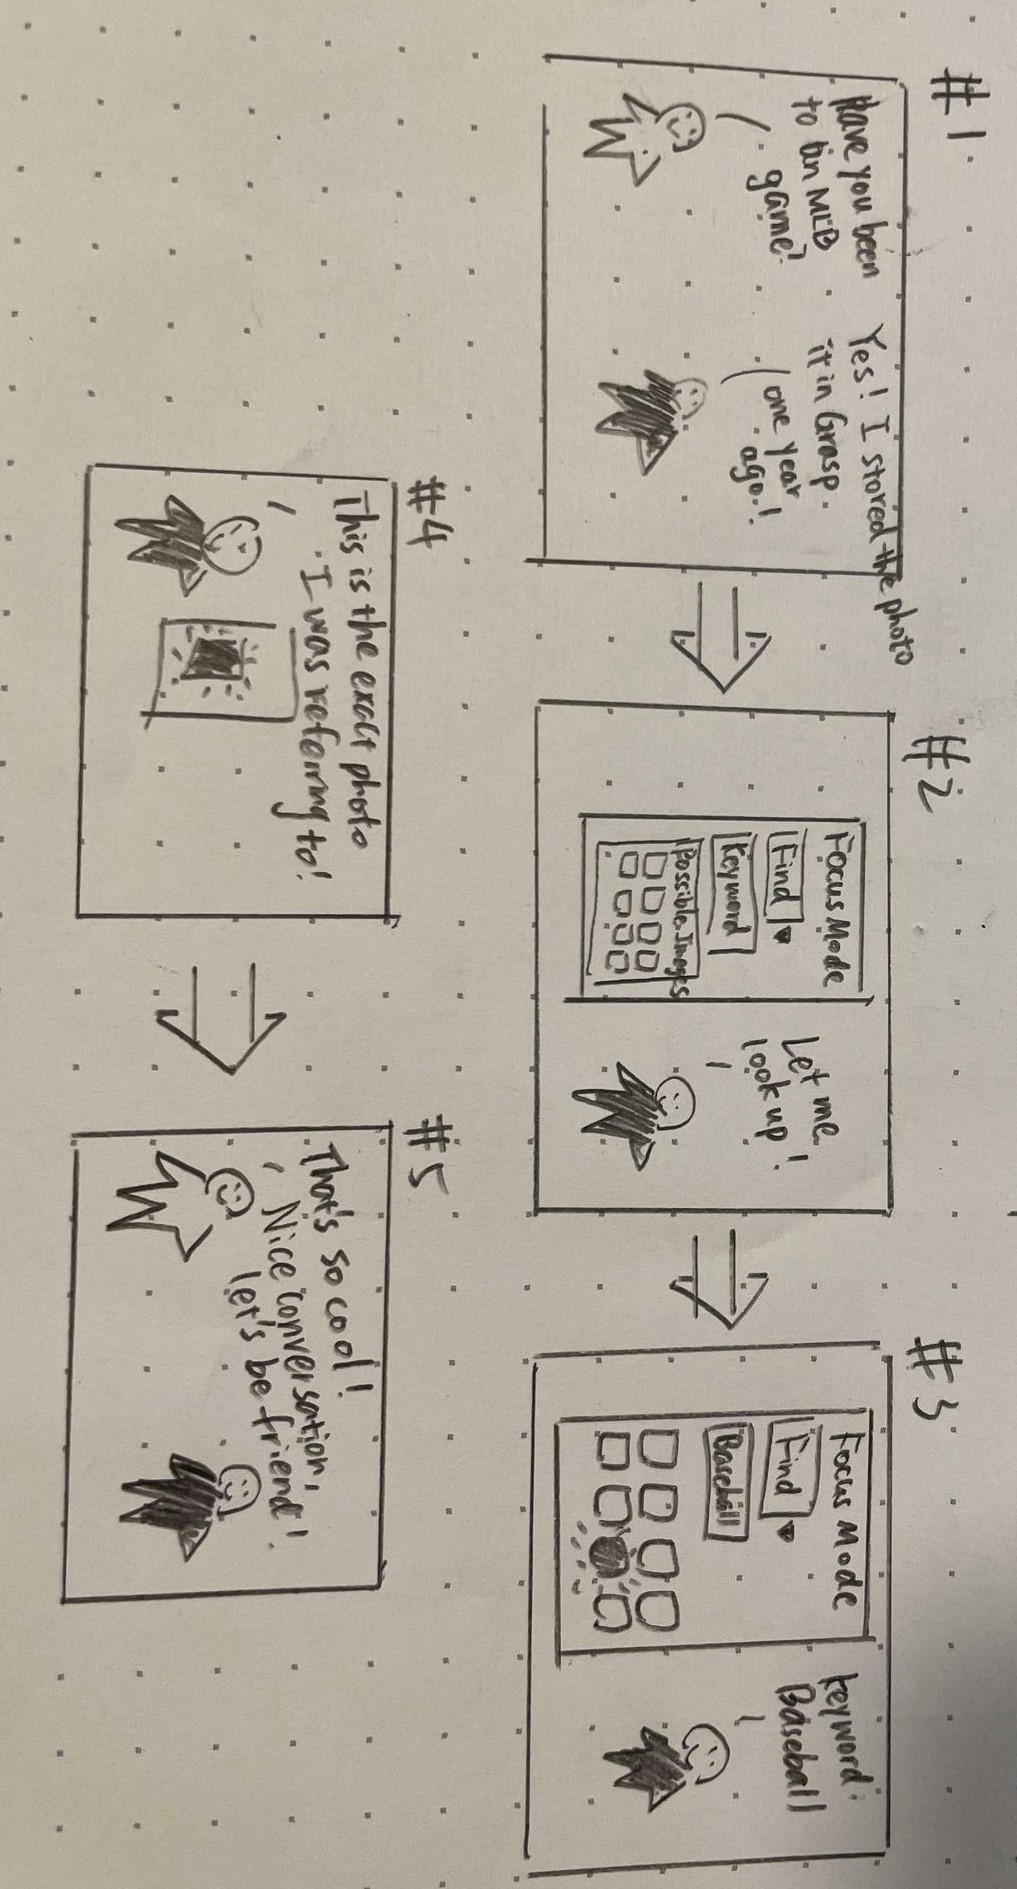 #1
Have you been
to an MLB
game?
Yes! I stored the photo
it in Grasp.
one year
ago.!
#2
Focus Mode
Find
Keyword
Possible Images
Let me
look up!
#3
Focus Mode
Find
Baseball
keyword:
Baseball
#4
This is the exact photo
I was referring to!
#5
That's so cool!
Nice conversation,
let's be friend!